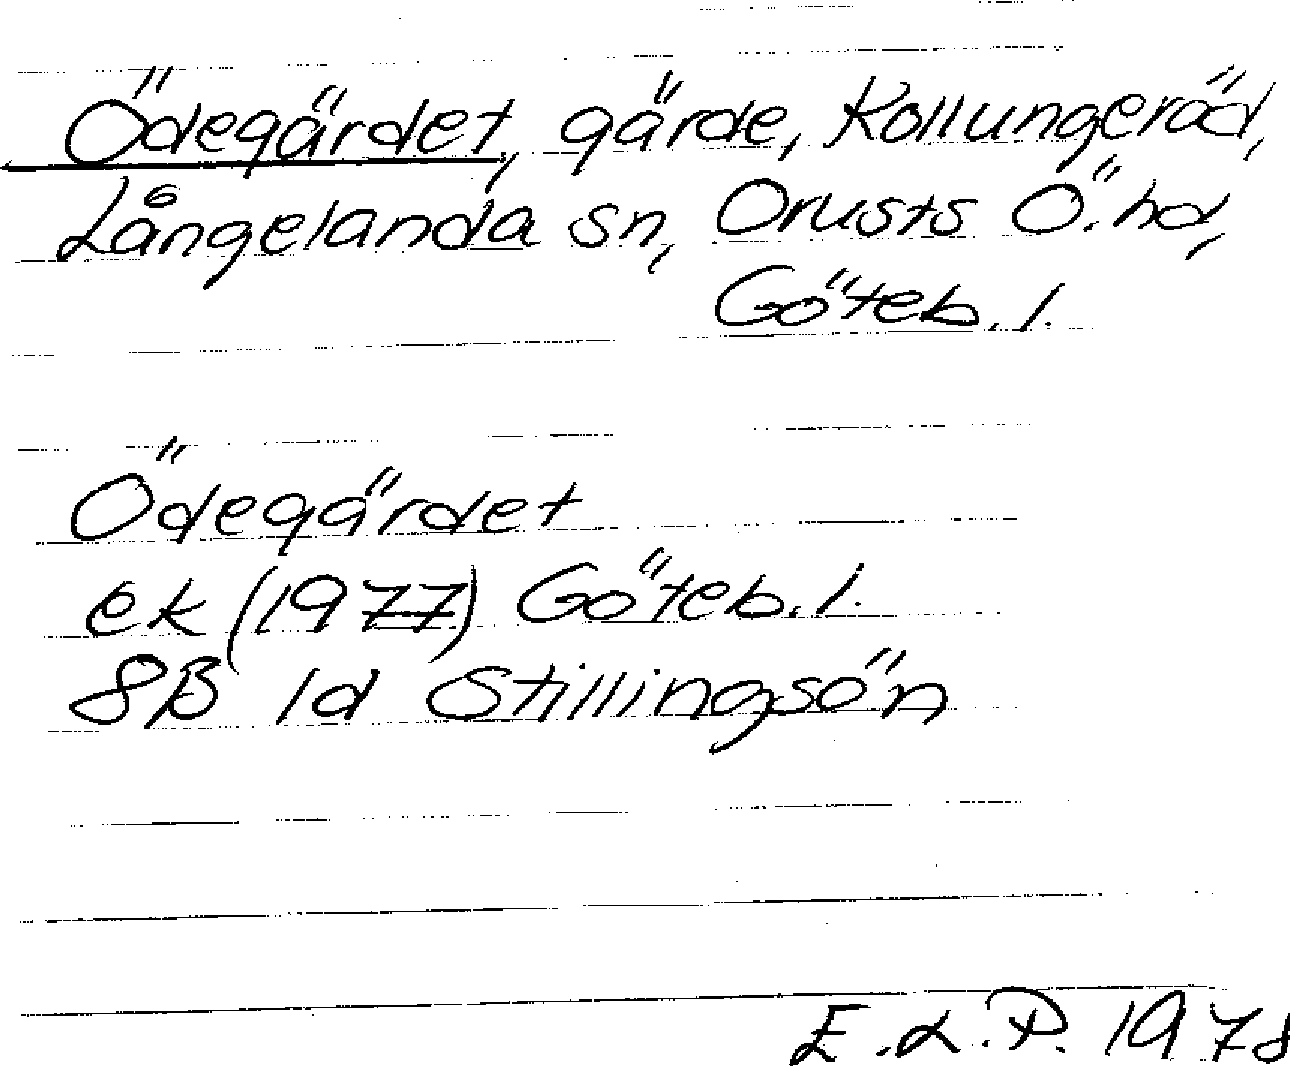 Ödegärdet, gärde, Kolungeröd,
Långelanda sn, Orusts Ö. hd,
Göteb. l.
Ödegärdet
ek (1977) Göteb. l.
8B 1d Stillingsön
E.L.P. 1978